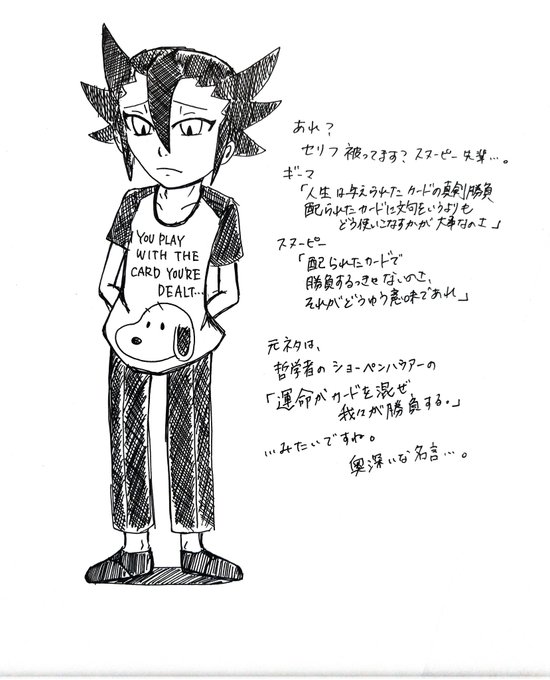 YOU PLAY
WITH THE
CARD YOU'RE
DEALT...
あれ?
セリフ被ってます?スヌーピー先輩…。
ギーマ
「人生は与えられたカードの真剣勝負
配られたカードに文句をいうよりも
どう使いこなすかが大事なのさ」
スヌーピー
「配られたカードで
勝負するっきゃないのさ、
それがどうゆう意味であれ」
元ネタは、
哲学者のショーペンハウアーの
「運命がカードを混ぜ、
我々が勝負する。」
…みたいですね。
奥深いな名言…。